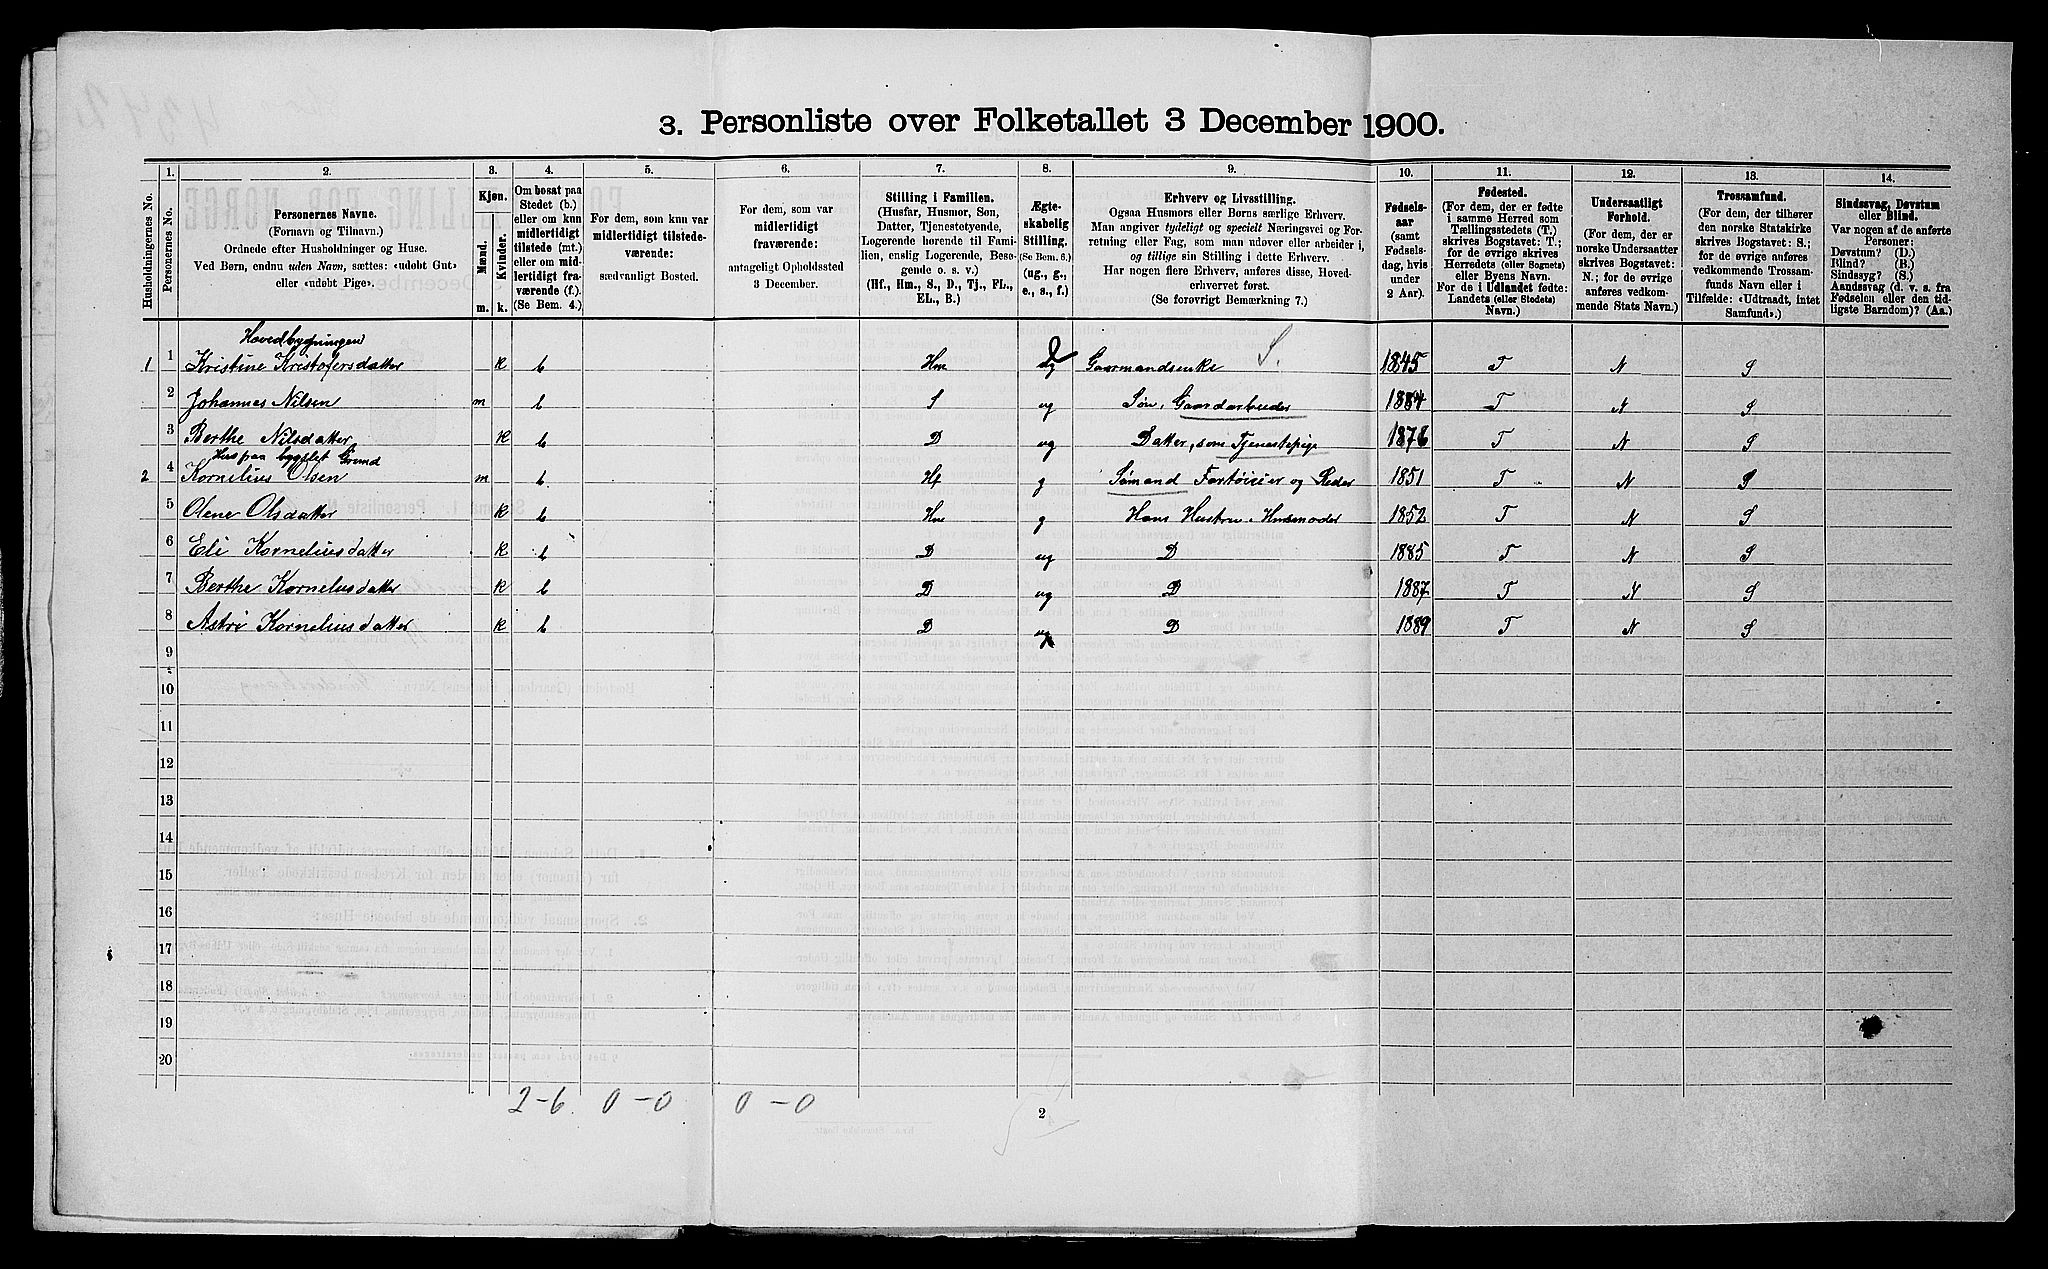 3. Personliste over Folketallet 3 December 1900.
Husholdningernes No.
1. Personernes No.
2. Personernes Navne.
(Fornavn og Tilnavn.)
Ordnede efter Husholdninger og Huse.
Ved Børn, endnu uden Navn, sættes: «udøbt Gut»
eller «udøbt Pige».
3. Kjøn.
Mænd. Kvinder.
m. k.
4. Om bosat paa
Stedet (b.)
eller om kun
midlertidigt
tilstede (mt.)
eller om mid-
lertidigt fra-
værende (f.)
(Se Bem. 4.)
5. For dem, som kun var
midlertidigt tilstede-
værende:
sædvanligt Bosted.
6. For dem, som var
midlertidigt
fraværende:
antageligt Opholdssted
3 December.
7. Stilling i Familien.
(Husfar, Husmor, Søn,
Datter, Tjenestetyende,
Logerende hørende til Fami-
lien, enslig Logerende, Besø-
gende o. s. v.)
(Hf., Hm., S., D., Tj., FL.,
EL., B.)
8. Ægte-
skabelig
Stilling.
(Se Bem. 6.)
(ug., g.,
e., s., f.)
9. Erhverv og Livsstilling.
Ogsaa Husmors eller Børns særlige Erhverv.
Man angiver tydeligt og specielt Næringsvei og For-
retning eller Fag, som man udøver eller arbeider i,
og tillige sin Stilling i dette Erhverv.
Har nogen flere Erhverv, anføres disse, Hoved-
erhvervet først.
(Se forøvrigt Bemærkning 7.)
10. Fødsels-
aar
(samt
Fødsels-
dag, hvis
under
2 Aar).
11. Fødested.
(For dem, der er fødte
i samme Herred som
Tællingsstedets (T.)
skrives Bogstavet: T.;
for de øvrige skrives
Herredets (eller Sognets)
eller Byens Navn.
For de i Udlandet fødte:
Landets (eller Stedets)
Navn.)
12. Undersaatligt
Forhold.
(For dem, der er
norske Undersaatter
skrives Bogstavet:
N.; for de øvrige
anføres vedkom-
mende Stats Navn.)
13. Trossamfund.
(For dem, der tilhører
den norske Statskirke
skrives Bogstavet: S.;
for de øvrige anføres
vedkommende Trossam-
funds Navn eller i
Tilfælde: «Udtraadt, intet
Samfund».)
14. Sindssvag, Døvstum
eller Blind.
Var nogen af de anførte
Personer:
Døvstum? (D.)
Blind? (B.)
Sindssyg? (S.)
Aandssvag (d. v. s. fra
Fødselen eller den tid-
ligste Barndom)? (Aa.)
Hovedbygningen
1 1 Kristine Kristofersdatter k b Hm Gaarmandsenke S. 1845 T N S
2 Johannes Nilsen m b S ug Søn, Gaardarbeider 1884 T N S
3 Berthe Nilsdatter k b D ug Datter, som Tjenestepige 1876 T N S
Hus paa bygslet Grund
2 4 Kornelius Olsen m b Hf g Sømand Fartøieier og Reder 1851 T N S
5 Olene Olsdatter k b Hm g Hans Hustru, Husmoder 1852 T N S
6 Eli Korneliusdatter k b D ug D 1885 T N S
7 Berthe Korneliusdatter k b D ug D 1887 T N S
8 Astri Korneliusdatter k b D ug D 1889 T N S
9
10
11
12
13
14
15
16
17
18
19
20
2-6 0-0 0-0
2